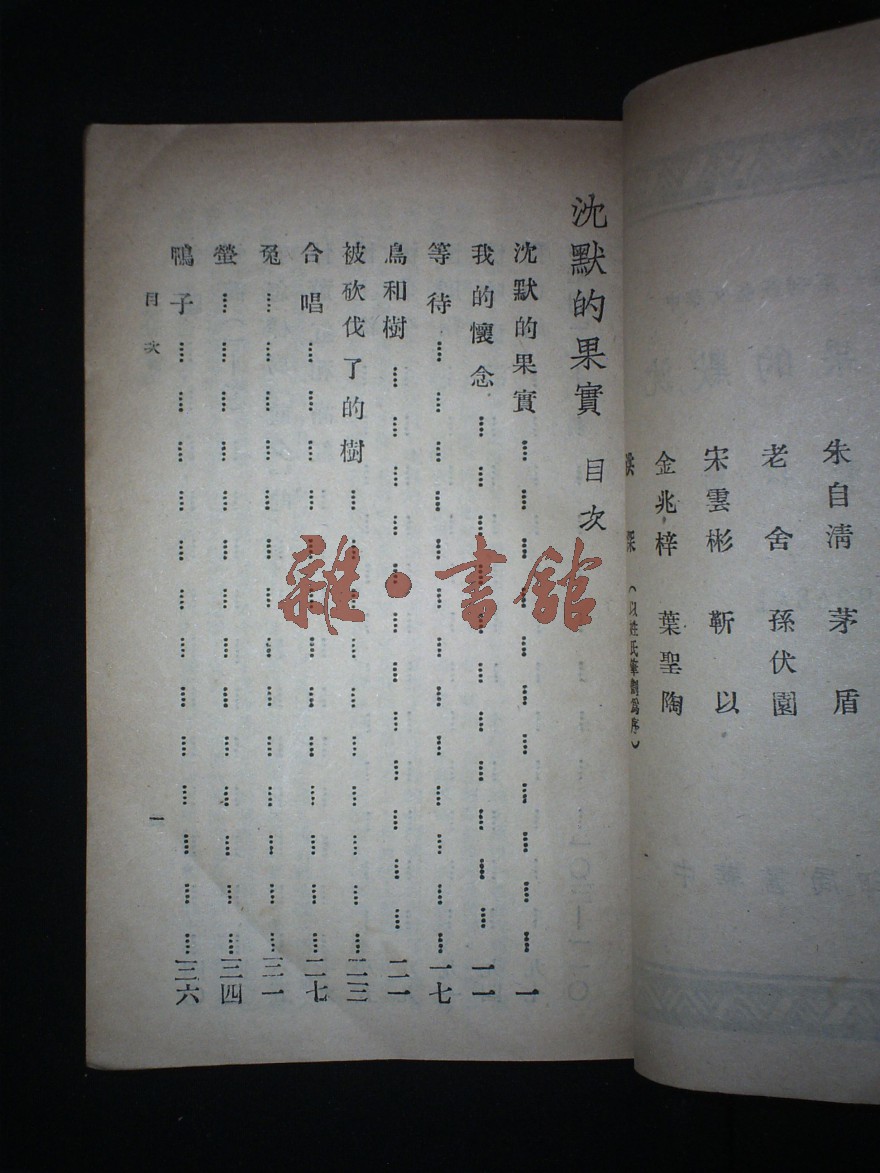 朱自清　茅盾
老舍　孫伏園
宋雲彬　靳以
金兆梓　葉聖陶
洪深（以姓氏筆劃爲序）
沈默的果實　目次
沈默的果實……一
我的懷念……一一
等待……一七
鳥和樹……二一
被砍伐了的樹……二三
合唱……二七
兔……三一
螢……三四
鴨子……三六
目次
一
雜·書館